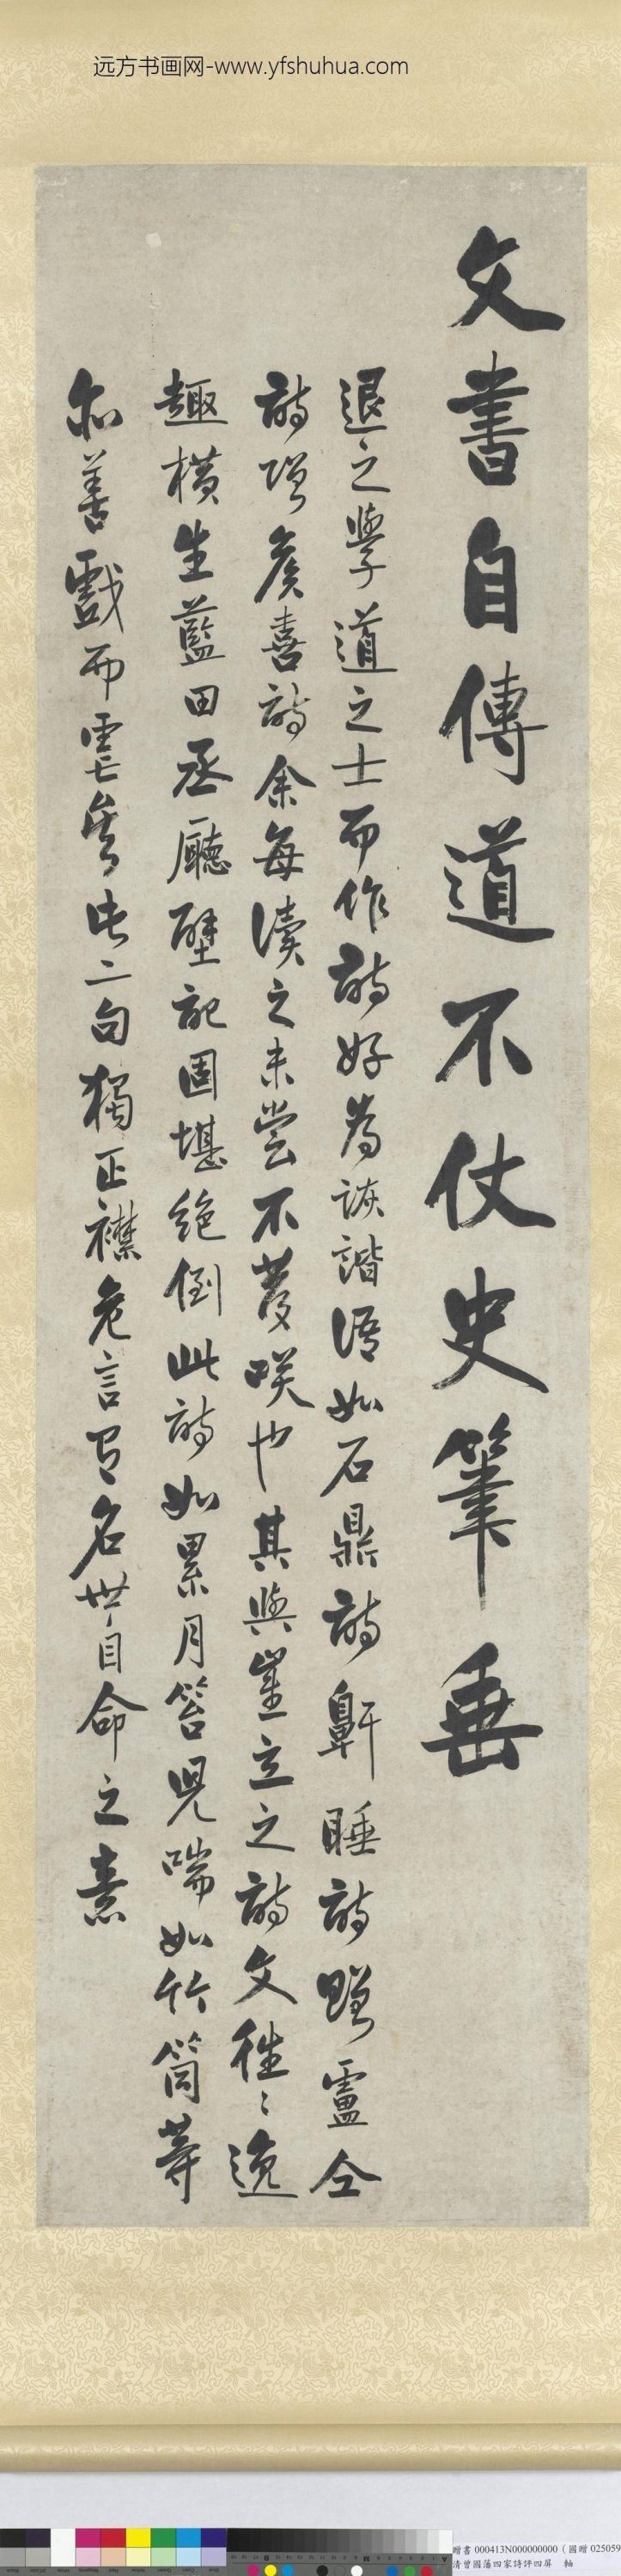 远方书画网-www.yfshuhua.com
文書自傳道不仗史筆垂
退之學道之士而作詩好為詼諧語如石鼎詩鼾睡詩贈盧仝
詩贈侯喜詩余每讀之未嘗不發咲也其與崔立之詩文往〻逸
趣橫生藍田丞廳壁記固堪絕倒此詩如累月笞兒喘如竹筒等
亦善戲而虐矣此二句獨正襟危言有名世自命之素
贈書 000413N000000000 (國贈 025059
清曾國藩四家詩評四屏 軸